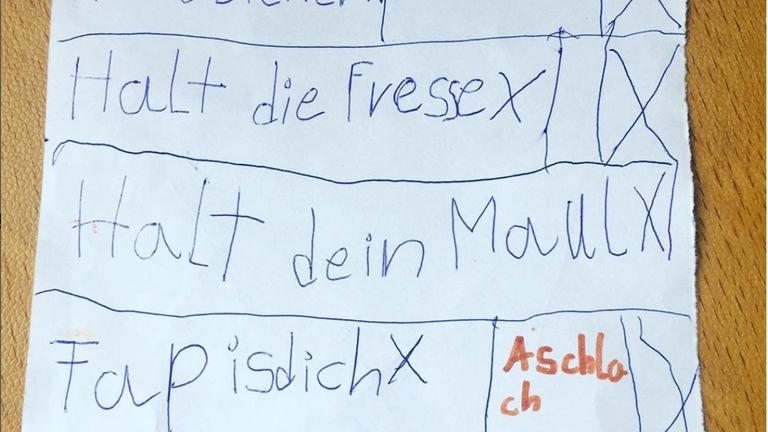 Halt die Fresse X
Halt dein Maul X
Fapisdich X
Aschlo
ch